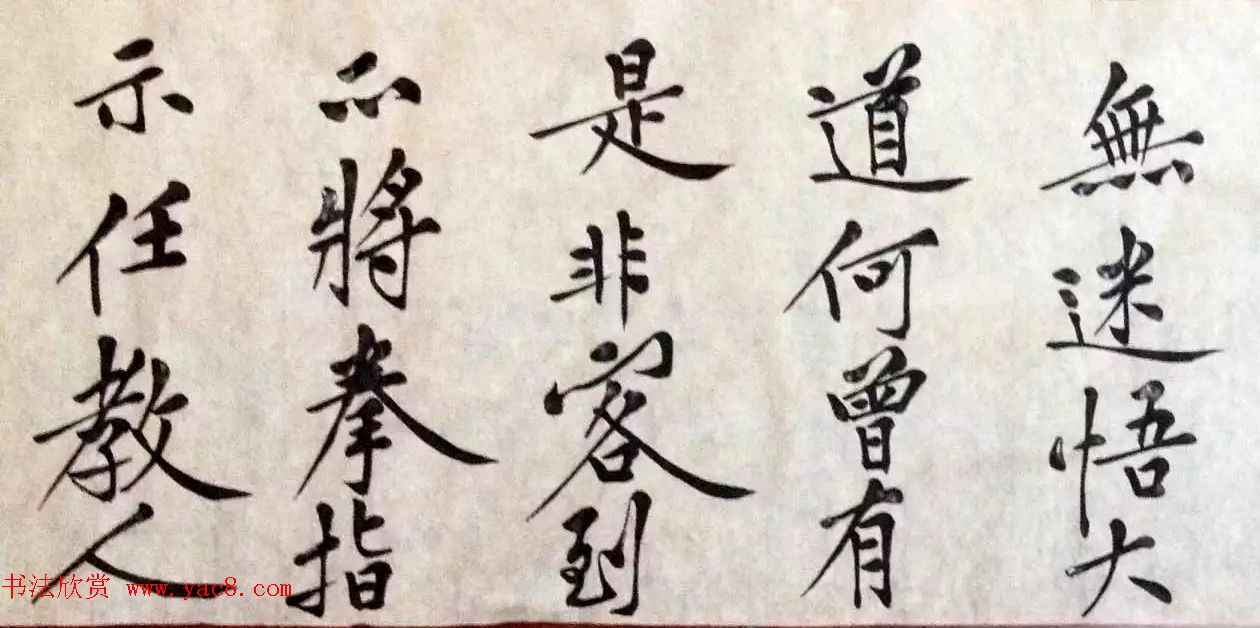 無迷悟大
道何曾有
是非客到
不將拳指
示任教人
书法欣赏 www.yac8.com